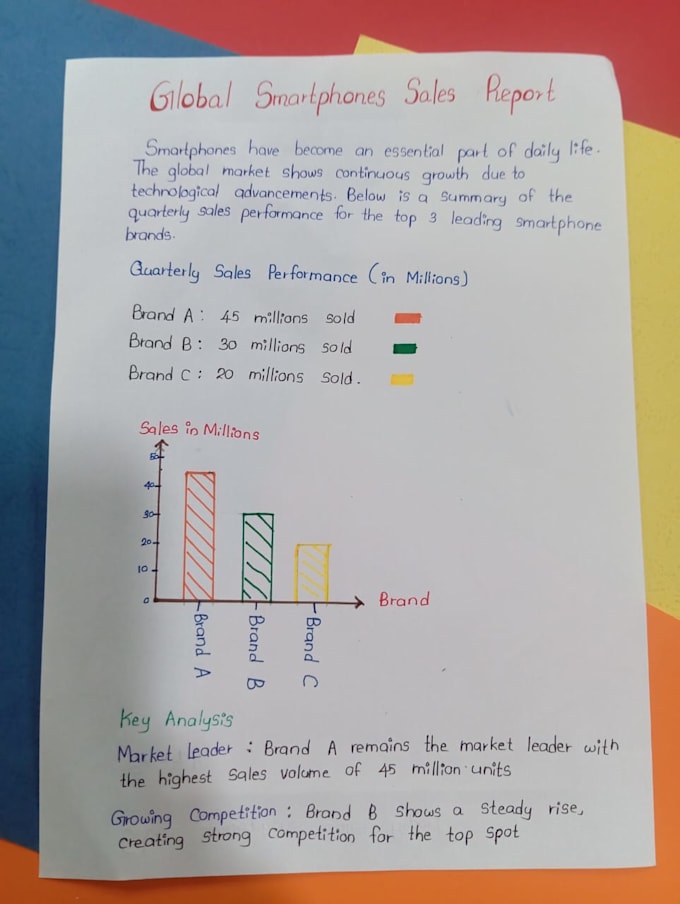 Global Smartphones Sales Report
Smartphones have become an essential part of daily life.
The global market shows continuous growth due to
technological advancements. Below is a summary of the
quarterly sales performance for the top 3 leading smartphone
brands.
Quarterly Sales Performance (in Millions)
Brand A: 45 millions sold
Brand B: 30 millions sold
Brand C: 20 millions sold.
Sales in Millions
50
40
30
20
10
0
Brand
Brand A
Brand B
Brand C
Key Analysis
Market Leader: Brand A remains the market leader with
the highest sales volume of 45 million units
Growing Competition: Brand B shows a steady rise,
creating strong competition for the top spot